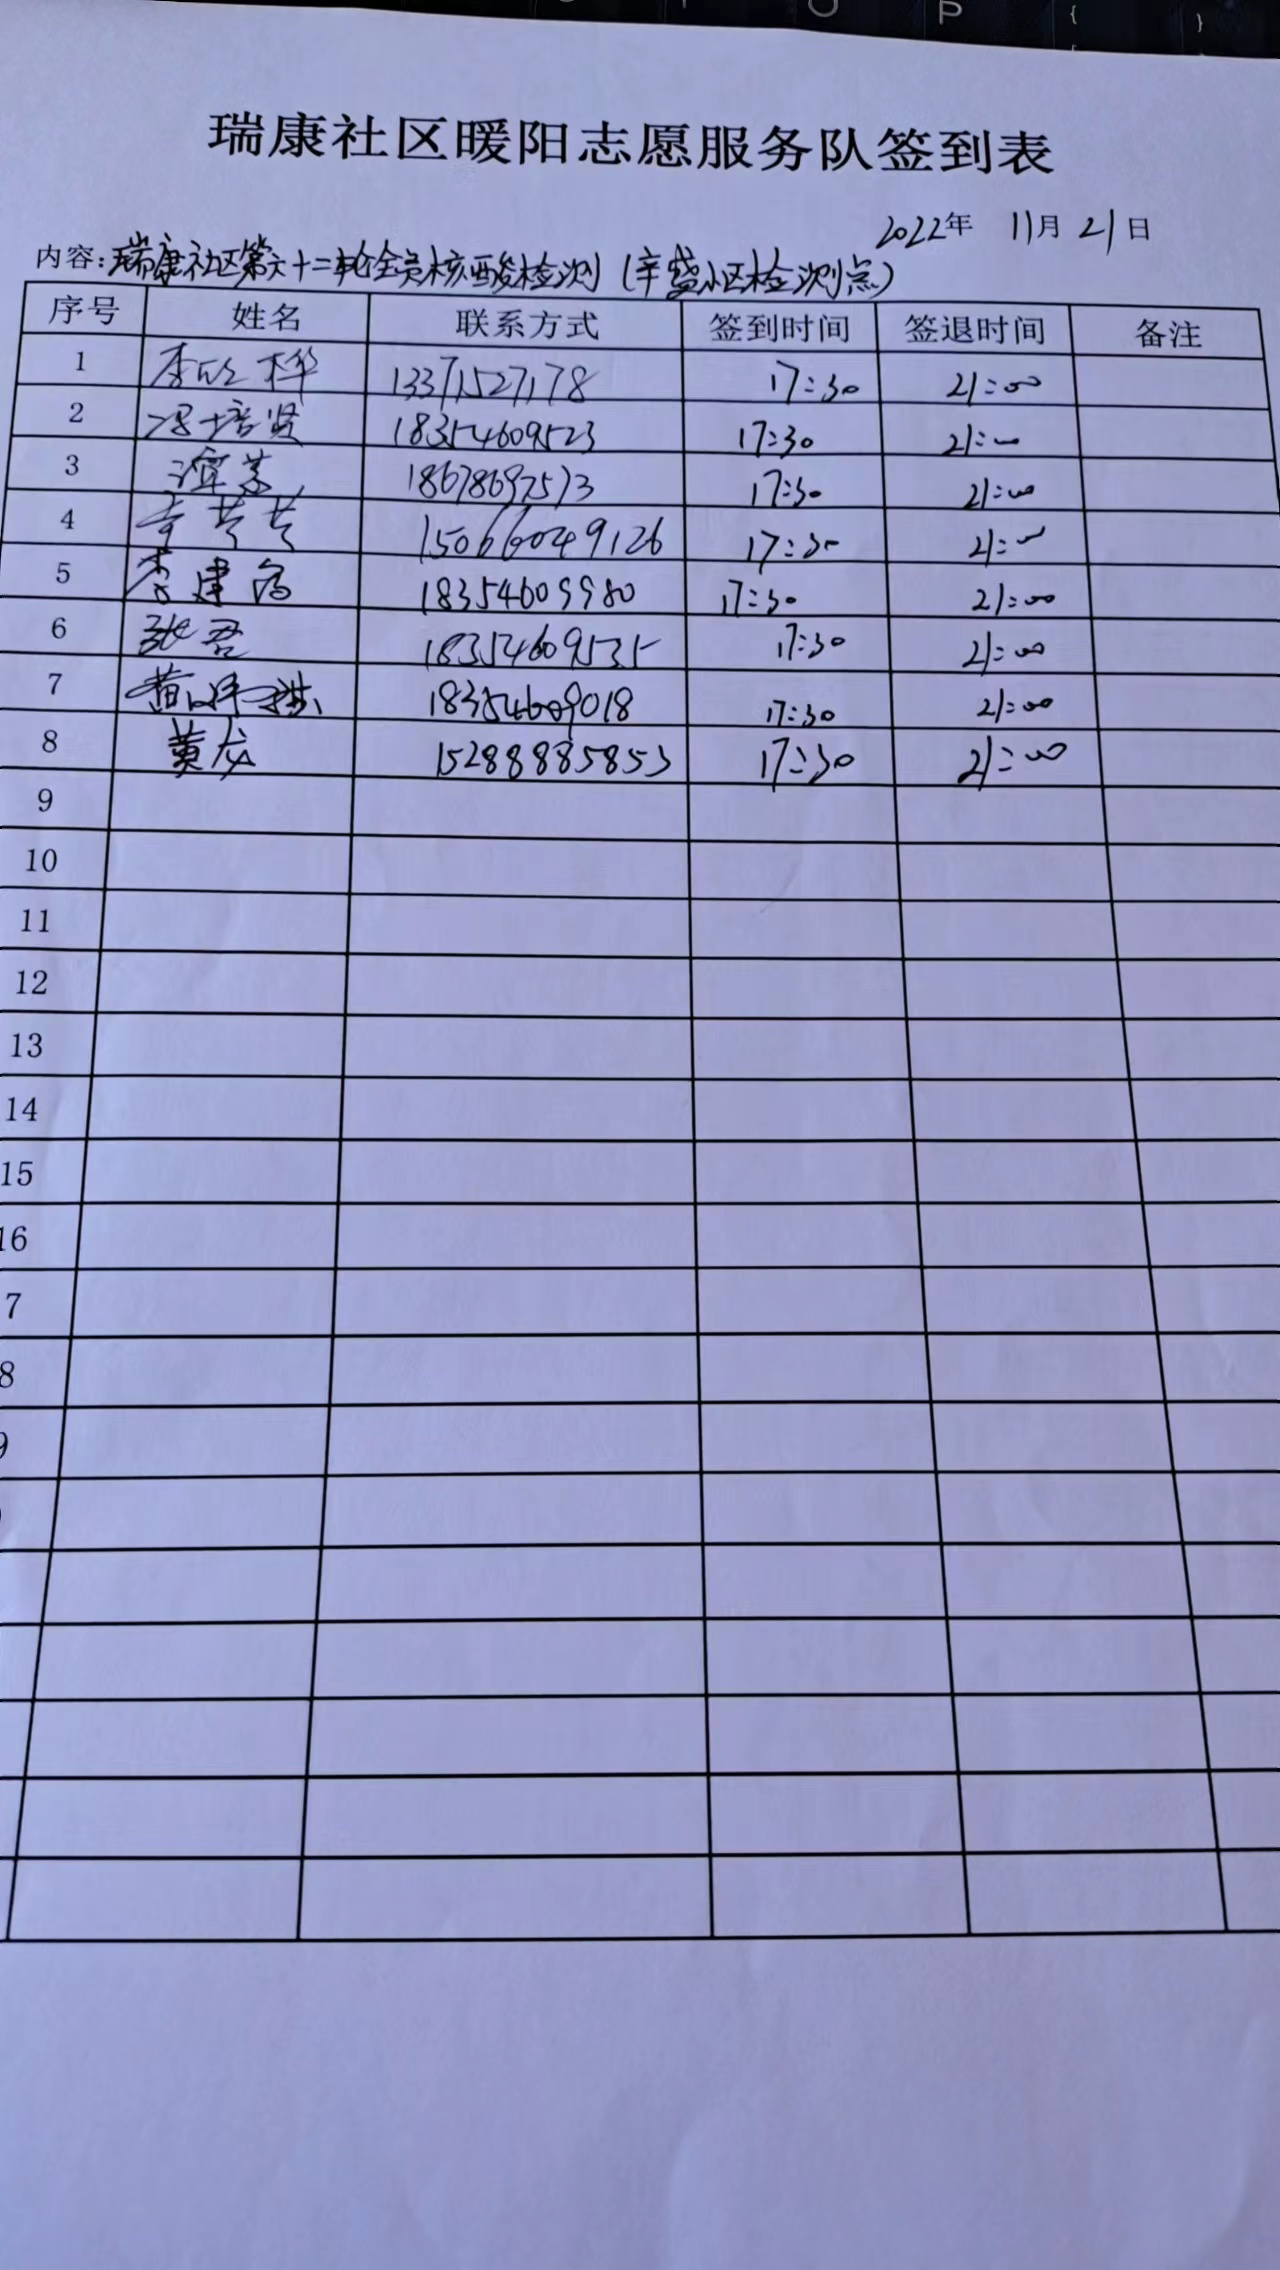 瑞康社区暖阳志愿服务队签到表
2022年 11月 21日
内容:瑞康社区第六十二轮全员核酸检测(辛盛小区检测点)
序号 姓名 联系方式 签到时间 签退时间 备注
1 李欣桦 13371527178 17:30 21:00
2 冯培贤 18354609523 17:30 21:00
3 18678697573 17:30 21:00
4 李芸芸 15066049126 17:30 21:00
5 李建 18354609980 17:30 21:00
6 张君 18354609535 17:30 21:00
7 黄 18354609018 17:30 21:00
8 黄龙 15288885853 17:30 21:00
9
10
11
12
13
14
15
16
7
8
9